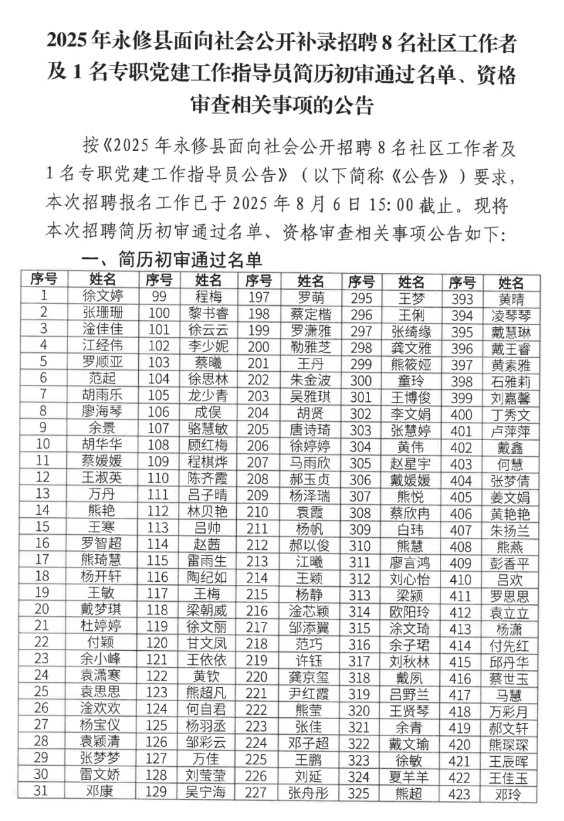 2025年永修县面向社会公开补录招聘8名社区工作者
及1名专职党建工作指导员简历初审通过名单、资格
审查相关事项的公告
按《2025年永修县面向社会公开招聘8名社区工作者及
1名专职党建工作指导员公告》（以下简称《公告》）要求，
本次招聘报名工作已于2025年8月6日15:00截止。现将
本次招聘简历初审通过名单、资格审查相关事项公告如下：
一、简历初审通过名单
序号 姓名 序号 姓名 序号 姓名 序号 姓名 序号 姓名
1 徐文婷 99 程梅 197 罗萌 295 王梦 393 黄晴
2 张珊珊 100 黎书睿 198 蔡定楷 296 王俐 394 凌琴琴
3 淦佳佳 101 徐云云 199 罗潇雅 297 张绮缘 395 戴慧琳
4 江经伟 102 李少妮 200 勒雅芝 298 龚文雅 396 戴王睿
5 罗顺亚 103 蔡曦 201 王丹 299 熊筱娅 397 黄素雅
6 范起 104 徐思林 202 朱金波 300 童玲 398 石雅莉
7 胡雨乐 105 龙少青 203 吴雅琪 301 王博俊 399 刘嘉馨
8 廖海琴 106 成俣 204 胡贤 302 李文娟 400 丁秀文
9 余景 107 骆慧敏 205 唐诗琦 303 张慧婷 401 卢萍萍
10 胡华华 108 顾红梅 206 徐婷婷 304 黄伟 402 戴鑫
11 蔡媛媛 109 程棋烨 207 马雨欣 305 赵星宇 403 何慧
12 王淑英 110 陈齐霞 208 郝玉贞 306 戴媛媛 404 张梦倩
13 万丹 111 吕子晴 209 杨泽瑞 307 熊悦 405 姜文娟
14 熊艳 112 林贝艳 210 袁霞 308 蔡欣冉 406 黄艳艳
15 王寒 113 吕帅 211 杨帆 309 白玮 407 朱扬兰
16 罗智超 114 赵茜 212 郝以俊 310 熊慧 408 熊燕
17 熊琦慧 115 雷雨生 213 江曦 311 廖言鸿 409 彭香平
18 杨开轩 116 陶纪如 214 王颖 312 刘心怡 410 吕欢
19 王敏 117 王梅 215 杨静 313 梁颍 411 罗思思
20 戴梦琪 118 梁朝威 216 淦芯颖 314 欧阳玲 412 袁立立
21 杜婷婷 119 徐文丽 217 邹添翼 315 涂文琦 413 杨潇
22 付颖 120 甘文凤 218 范巧 316 余子珺 414 付先红
23 余小峰 121 王依依 219 许钰 317 刘秋林 415 邱丹华
24 袁潇寒 122 黄钦 220 龚京玺 318 戴夙 416 蔡世玉
25 袁思思 123 熊超凡 221 尹红霞 319 吕野兰 417 马慧
26 淦欢欢 124 何自君 222 熊莹 320 王贤琴 418 万彩月
27 杨宝仪 125 杨羽丞 223 张佳 321 余青 419 郝文轩
28 袁颖清 126 邹彩云 224 邓子超 322 戴文瑜 420 熊琛琛
29 张梦梦 127 万佳 225 王鹏 323 徐敏 421 王辰晖
30 雷文娇 128 刘莹莹 226 刘延 324 夏羊羊 422 王佳玉
31 邓康 129 吴宁海 227 张舟彤 325 熊超 423 邓玲